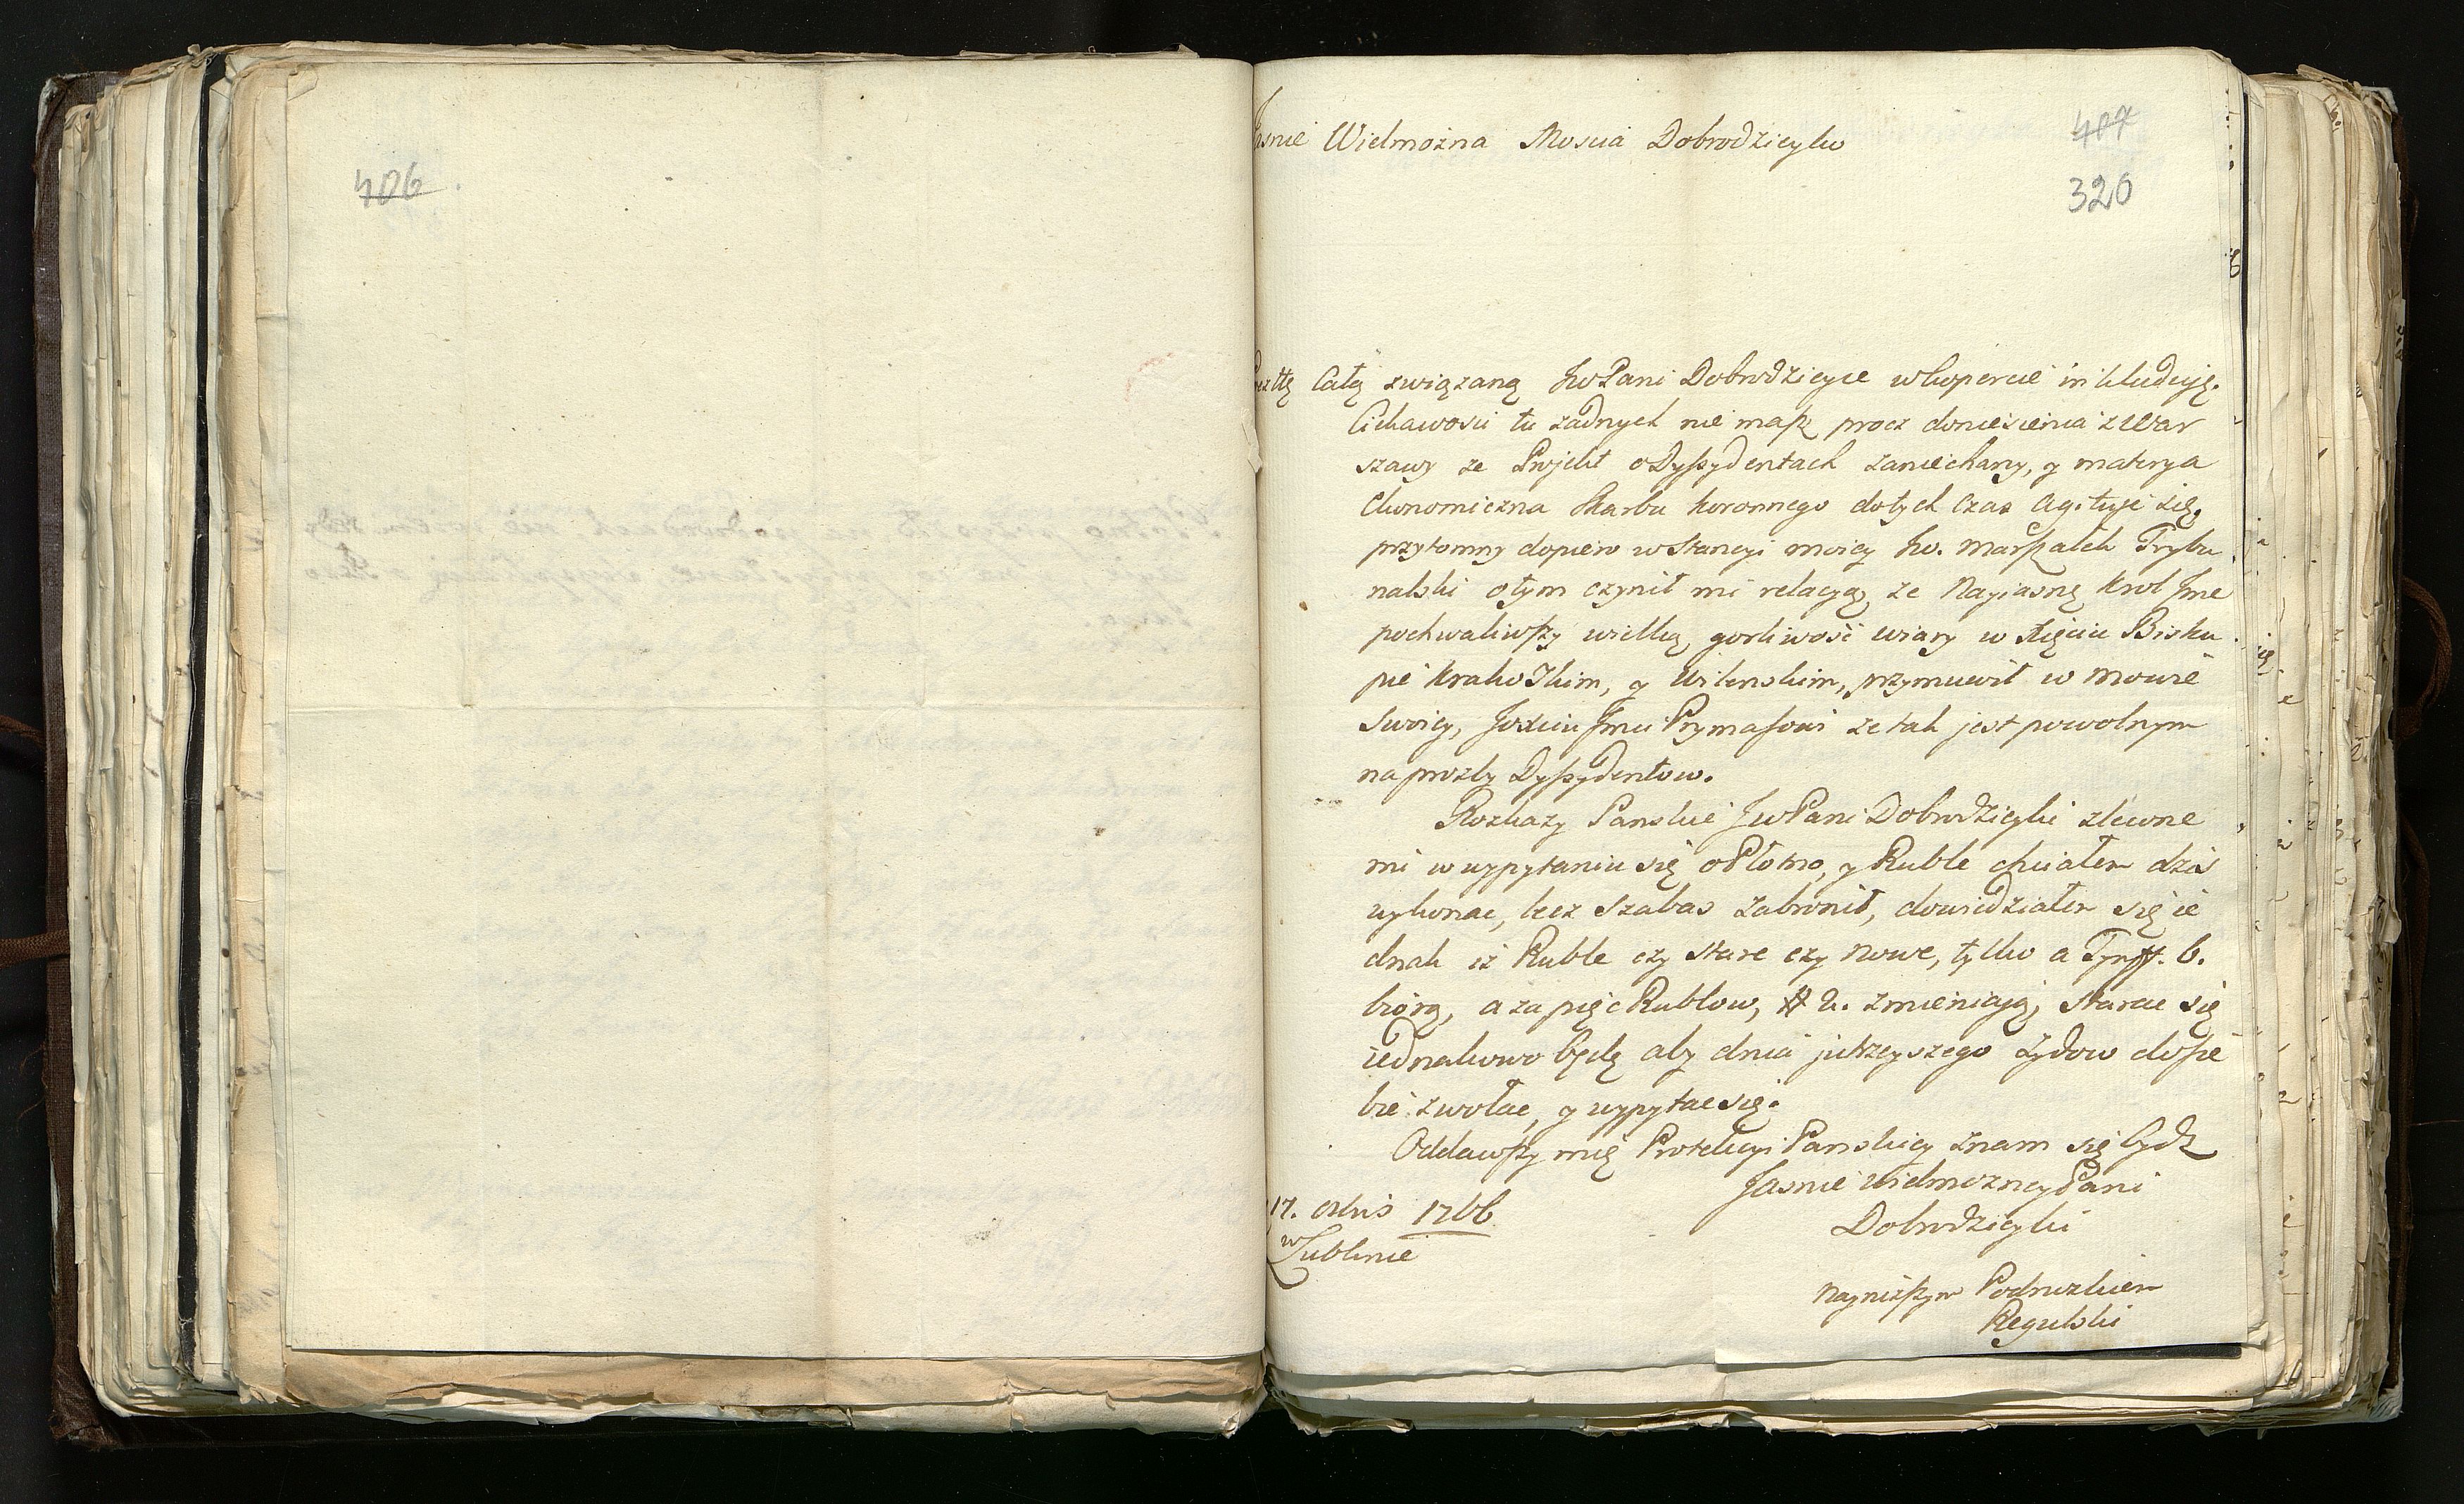 406
407
320
Jasnie Wielmożna Moscia Dobrodzieyko
Całą związaną JwPani Dobrodzieyce wkopercie inkluduję.
Ciekawosci tu żadnych nie masz procz doniesienia z War
szawy ze Projekt o Dyssydentach zaniechany, y materya
Ekonomiczna Skarbu koronnego dotych czas agituje się,
przytomny dopiero w Stancyi moiey Jw. Marszałek Trybu
nalski o tym czynił mi relacyą, że Nayiasny Krol Jmc
pochwaliwszy wielką gorliwość wiary w Xięciu Bisku
pie Krakowskim, y Wilenskim, przymuwił w mowie
Swoiey, Jmci Prymasowi ze tak jest powolnym
na prozby Dyssydentow.
Rozkazy Panskie JwPani Dobrodzieyki zlecone
mi w wypytaniu się o Płotno, y Ruble chciałem dziś
wykonac, lecz Szabas zabronił, dowiedziałem się ie
dnak iż Ruble czy stare czy nowe, tylko a Tynff. 6.
biorą, a za pięc Rublow, # 2. zmieniaią, starac się
iednakowo będę aby dnia jutrzeyszego Zydow do sie
bie zwołac, y wypytac się.
Oddawszy mię Protekcyi Panskiey znam się bydz
Jasnie Wielmozney Pani
Dobrodzieyki
17. 8bris 1766
w Lublinie
Nayniższym Podnozkiem
Regulski